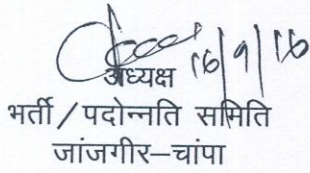 16/9/16
अध्यक्ष
भर्ती / पदोन्नति समिति
जांजगीर–चांपा